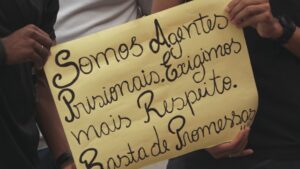 Somos Agentes
Prisionais. Exigimos
mais Respeito.
Basta de Promessas